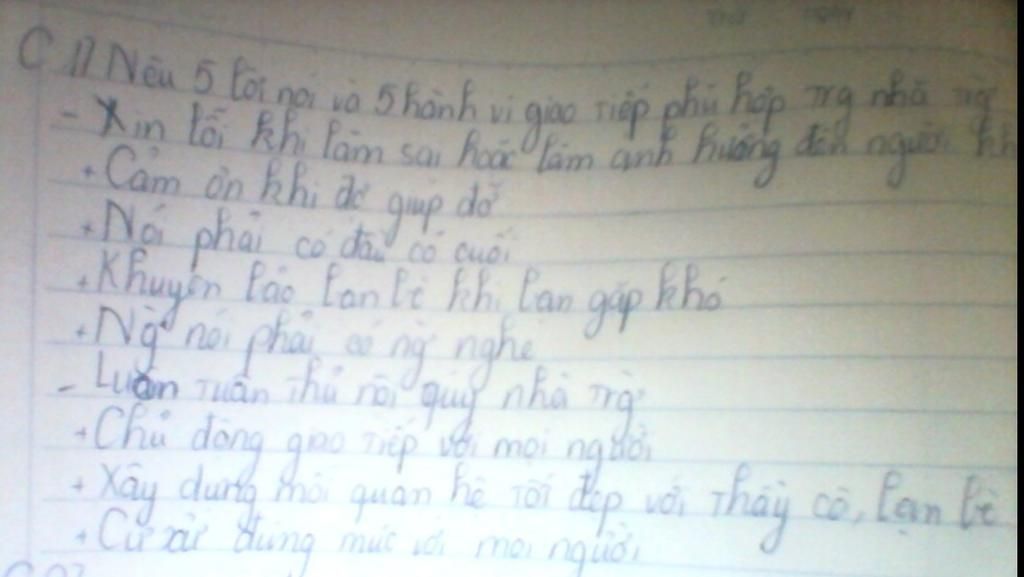 C1) Nêu 5 lời nói và 5 hành vi giao tiếp phù hợp trg nhà trg
- Xin lỗi khi làm sai hoặc làm ảnh hưởng đến người kh
+ Cảm ơn khi đc giúp đỡ
+ Nói phải có đầu có cuối
+ Khuyên bảo bạn bè khi bạn gặp khó
+ Ng nói phải có ng nghe
- Luôn tuân thủ nội quy nhà trg
+ Chủ động giao tiếp với mọi người
+ Xây dựng mối quan hệ tốt đẹp với thầy cô, bạn bè
+ Cư xử đúng mực với mọi người